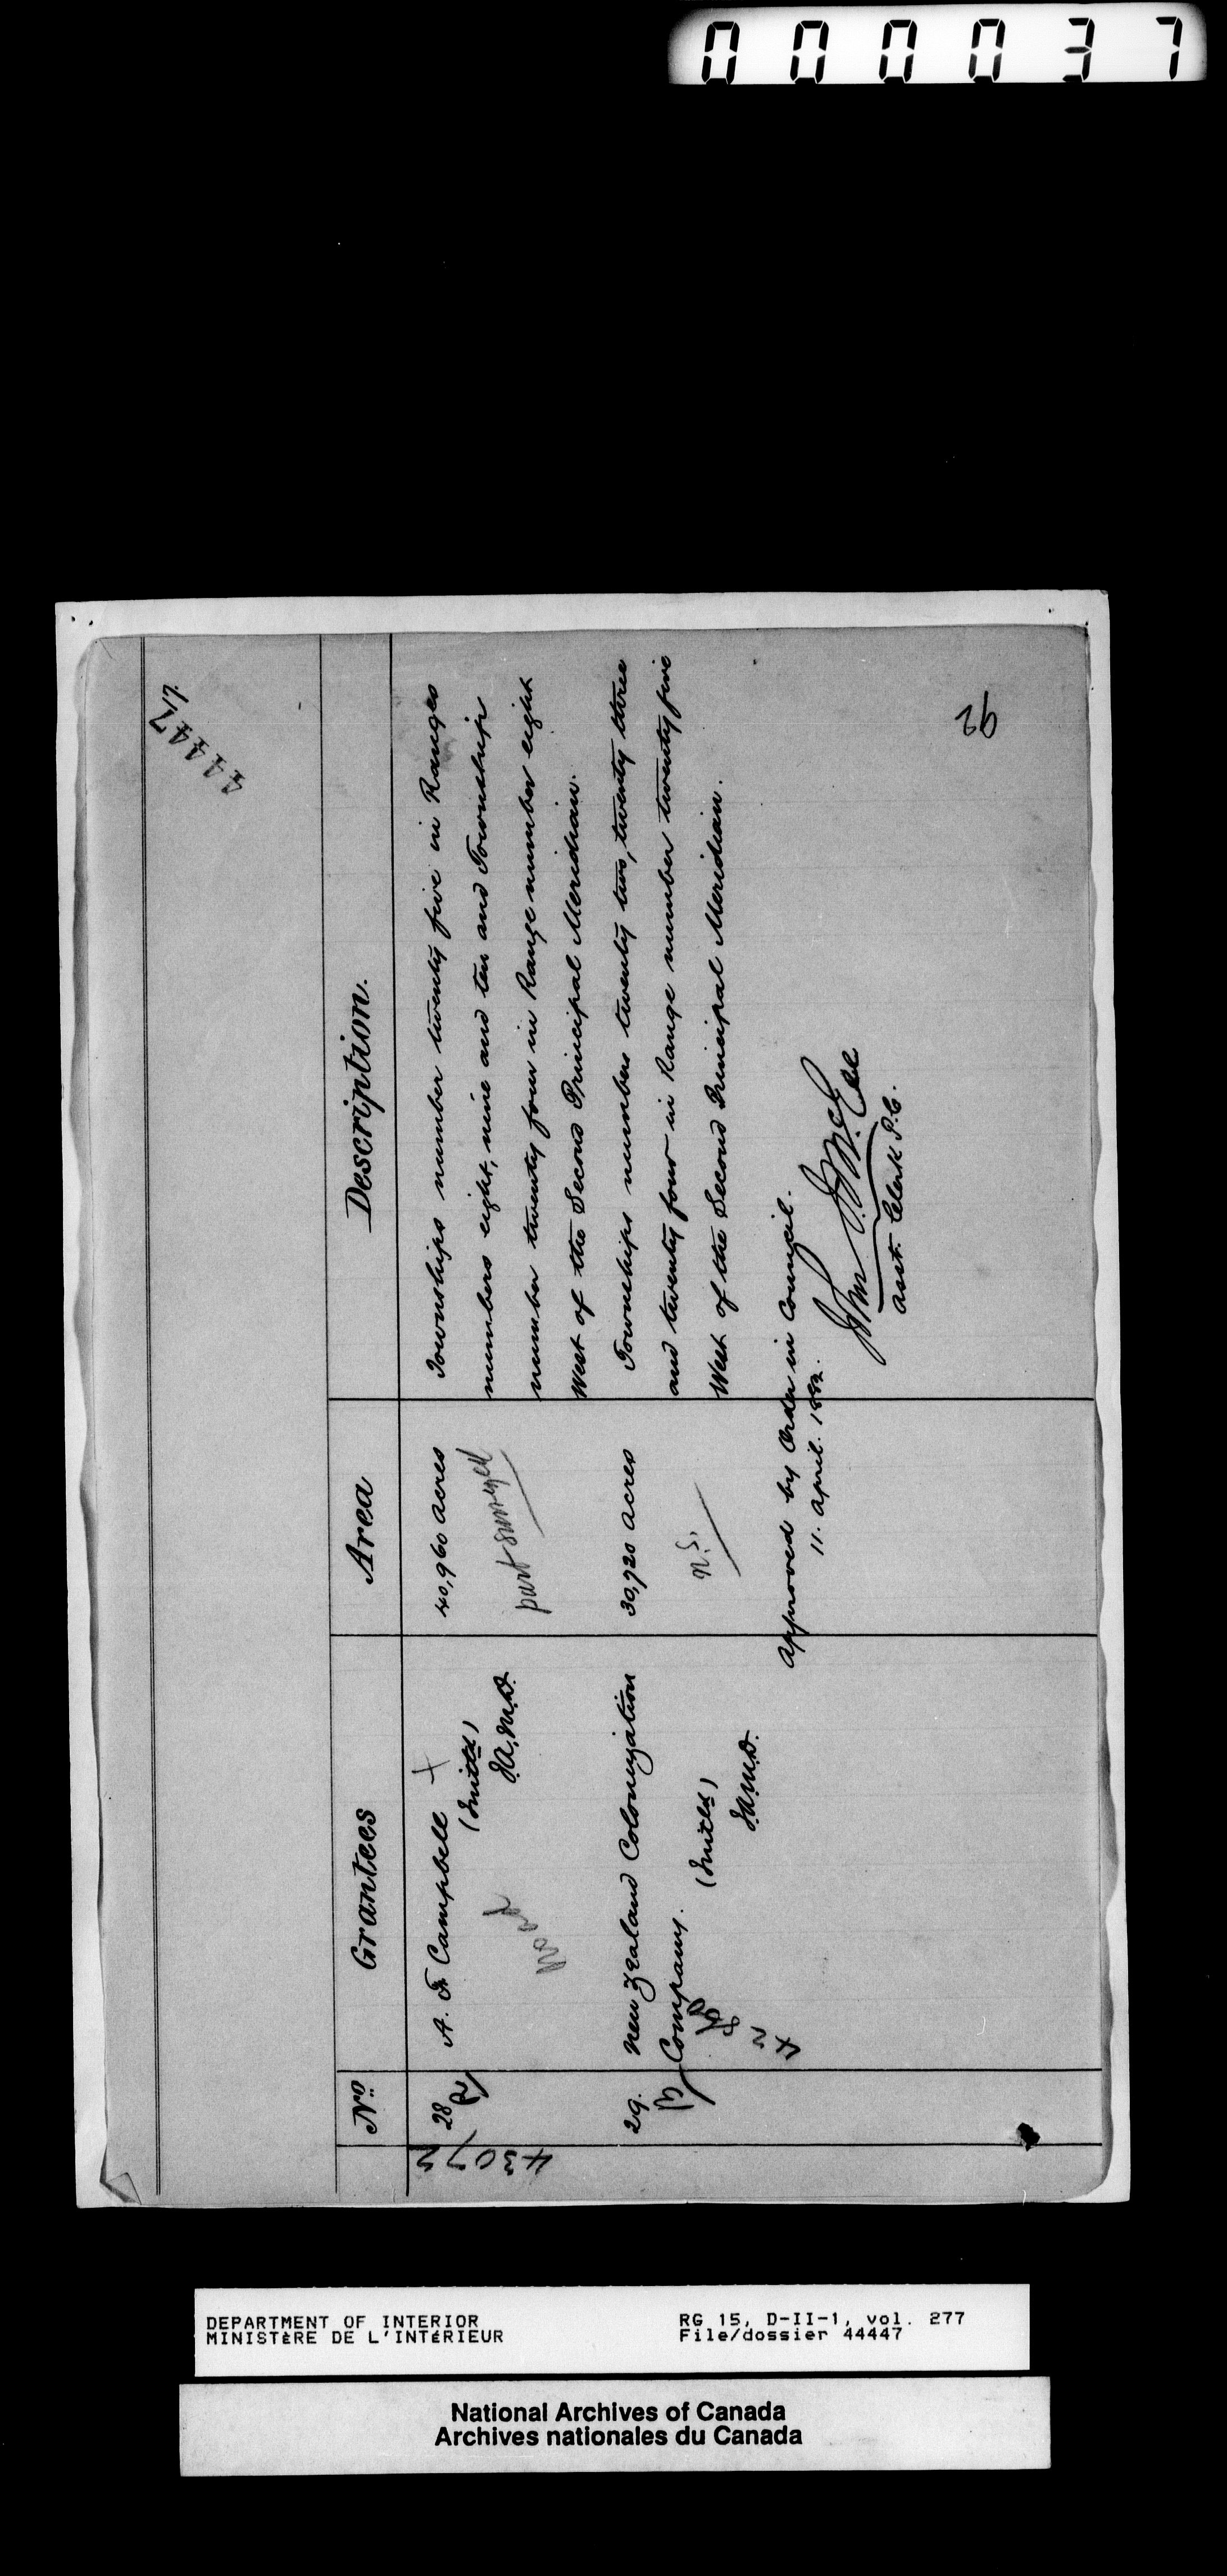 000037
44447
17
No. Grantees Area Description.
43072
28 A. F. Campbell + 40,960 acres Townships number twenty five in Ranges
(Initld) part surveyed numbers eight, nine and ten and Township
J.A.McD. number twenty four in Range number eight
West of the Second Principal Meridian.
29. New Zealand Colonization 30,720 acres Townships numbers twenty two, twenty three
Company. n.S. and twenty four in Range number twenty five
(Initld) West of the Second Principal Meridian.
J.A.McD.
Approved by Order in Council.
11. April. 1882.
John J. McGee
Asst. Clerk P.C.
26
DEPARTMENT OF INTERIOR RG 15, D-II-1, vol. 277
MINISTÈRE DE L'INTÉRIEUR File/dossier 44447
National Archives of Canada
Archives nationales du Canada